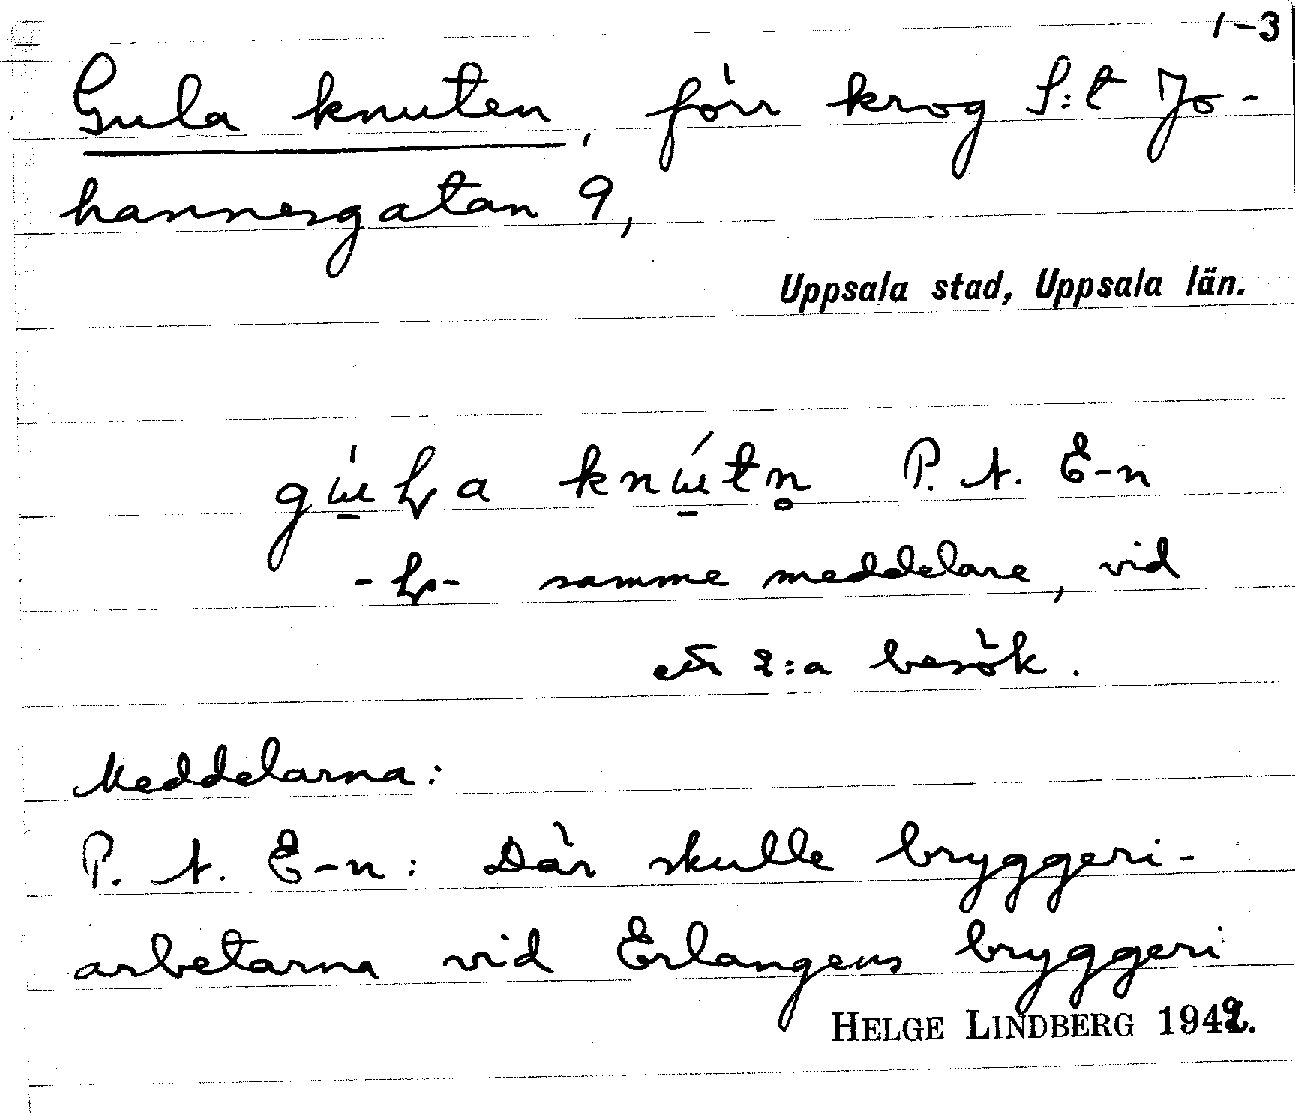 1-3
Gula knuten, förr krog S:t Jo-
hannesgatan 9,
Uppsala stad, Uppsala län.
P. A. E-n
samme meddelare, vid
ett 2:a besök.
Meddelarna:
P. A. E-n: Där skulle bryggeri-
arbetarna vid Erlangens bryggeri
HELGE LINDBERG 1942.